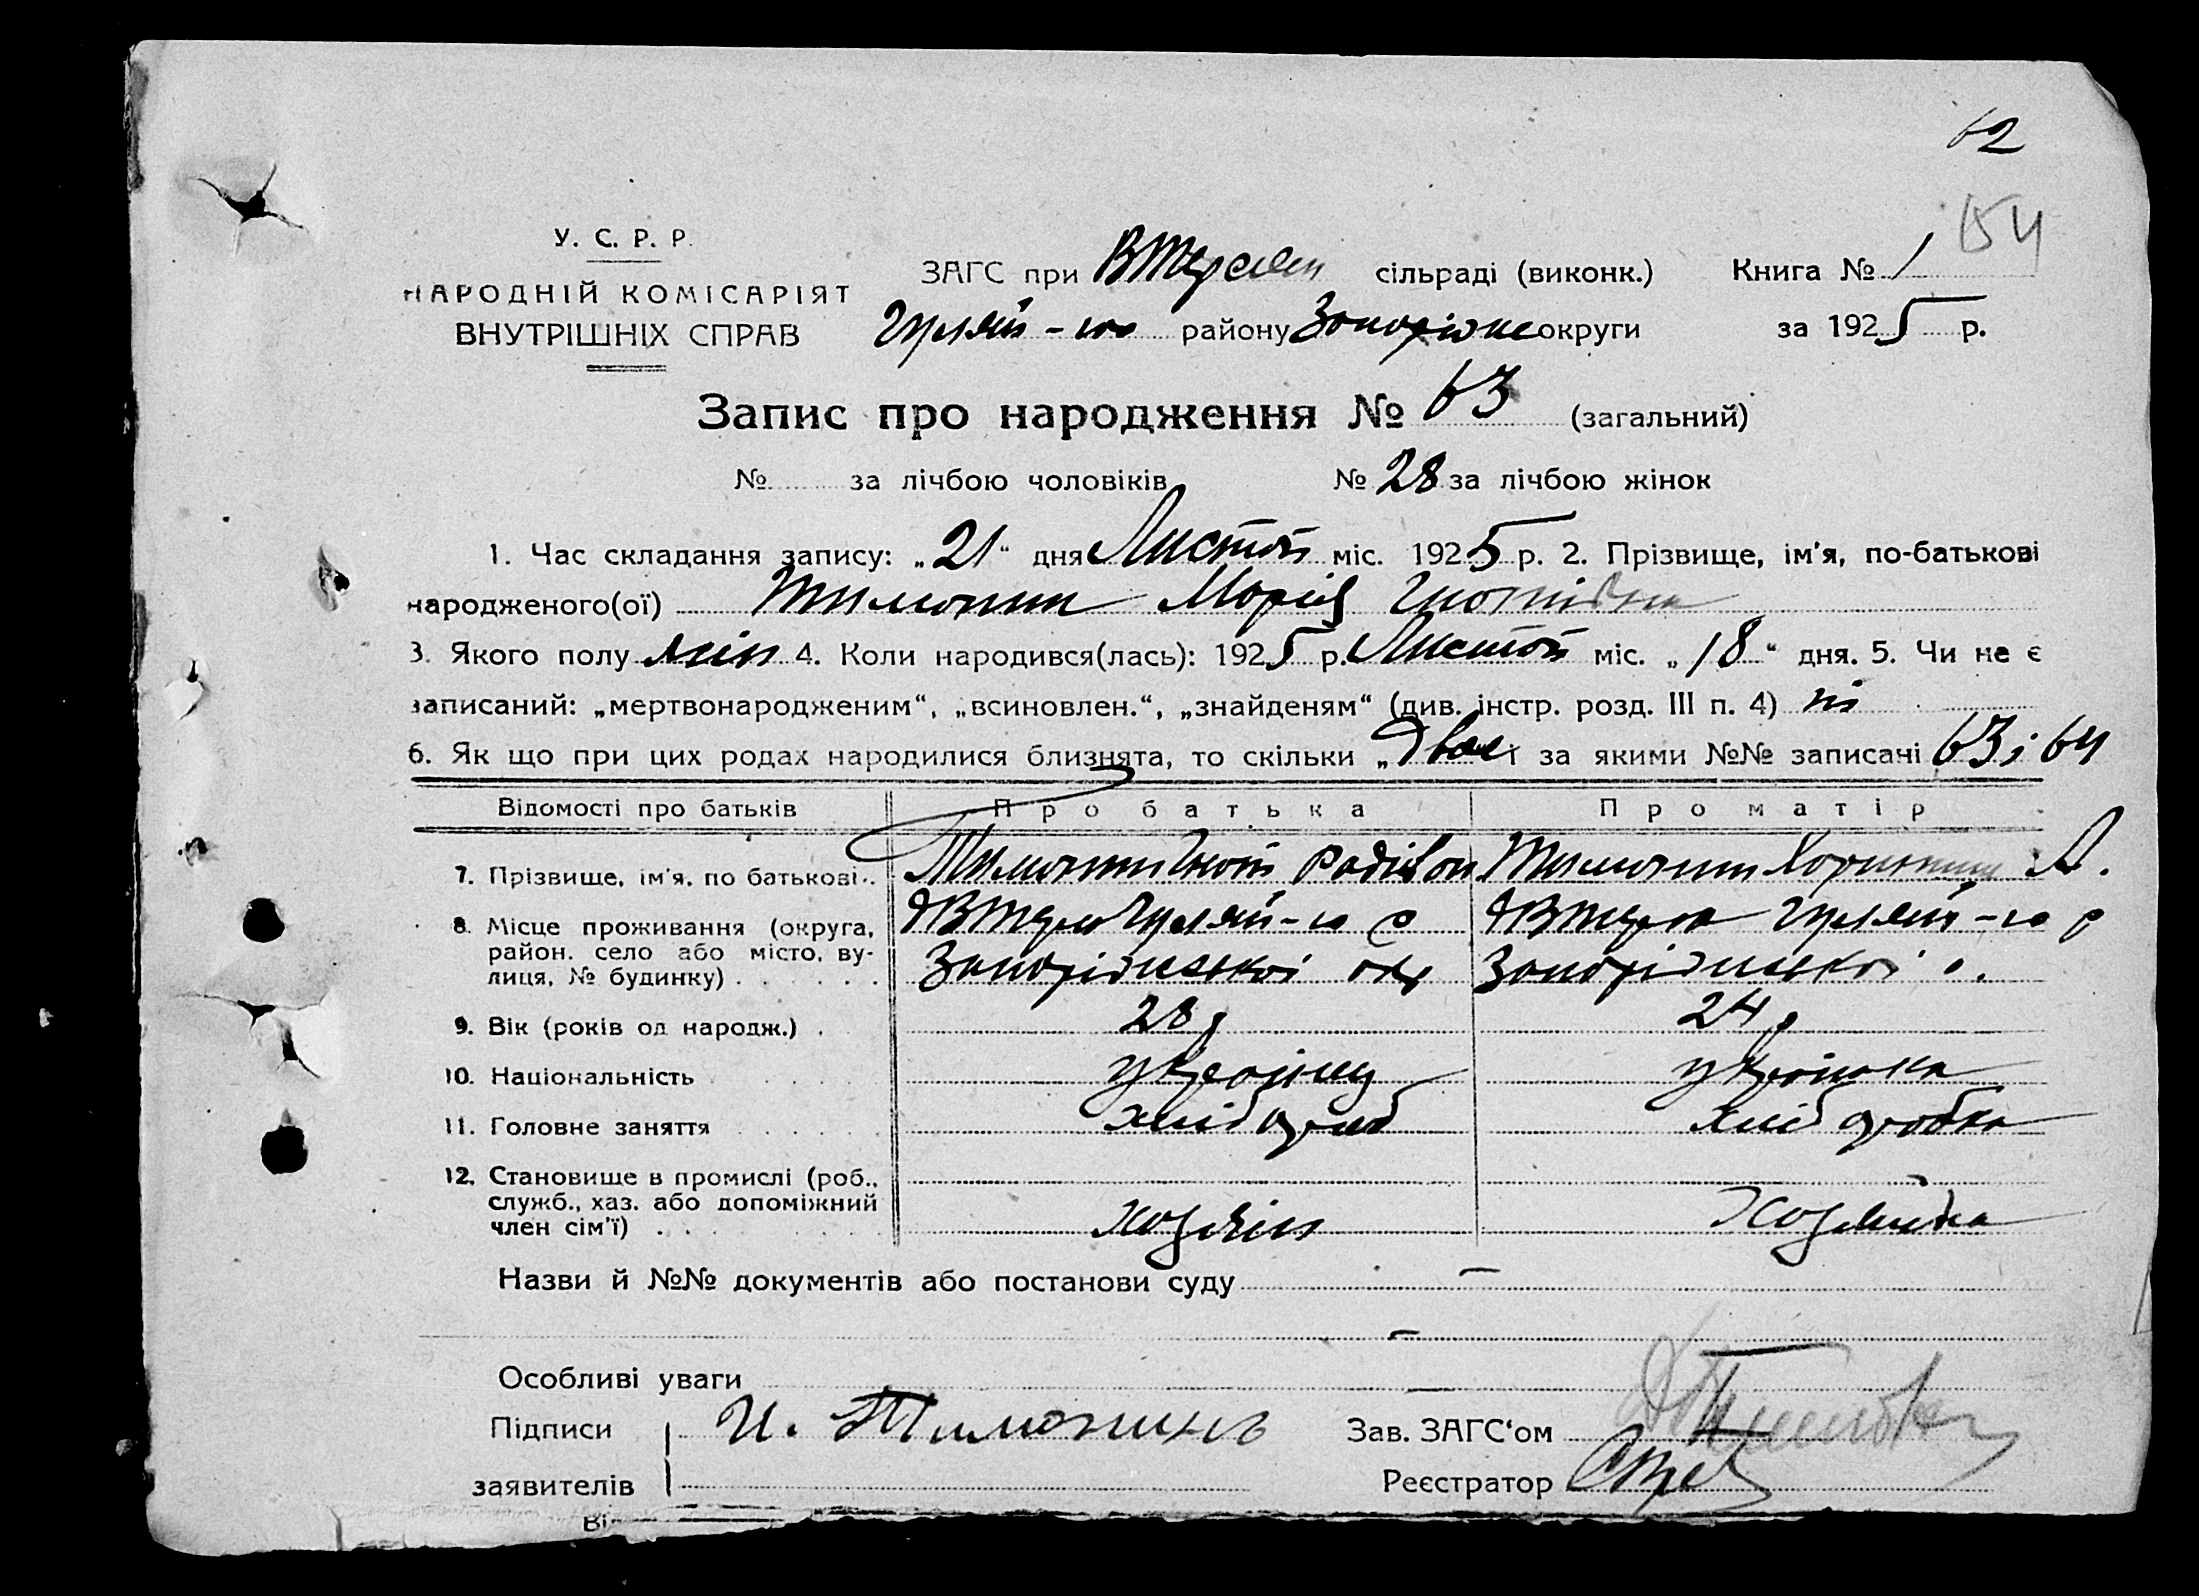 62
154
У. С. Р. Р.
НАРОДНІЙ КОМІСАРІЯТ
ВНУТРІШНІХ СПРАВ
ЗАГС при сільраді (виконк.) Книга № 1
Гуляй - району округи за 1925 р.
Запис про народження № 63 (загальний)
№ за лічбою чоловіків № 28 за лічбою жінок
1. Час складання запису: „21“ дня Листоп міс. 1925 р. 2. Прізвище, ім'я, по-батькові
народженого(ої) Тимошин Марія Гнатівна
3. Якого полу жін 4. Коли народився(лась): 1925 р. Листоп міс. „18“ дня. 5. Чи не є
записаний: „мертвонародженим“, „всиновлен.“, „знайденям“ (див. інстр. розд. III п. 4) ні
6. Як що при цих родах народилися близнята, то скільки „двоє і за якими №№ записані 63 і 64
Відомості про батьків Про батька Про матір
7. Прізвище, ім'я, по батькові Гнат Родівон А.
8. Місце проживання (округа,
район, село або місто, ву-
лиця, № будинку) Запоріжської окр Запоріжської о.
9. Вік (років од народж.) 28 р 24 р
10. Національність українц українка
11. Головне заняття хлібороб хліборобка
12. Становище в промислі (роб.,
служб., хаз. або допоміжний
член сім'ї) хозяїн хозяйка
Назви й №№ документів або постанови суду —
—
Особливі уваги —
Підписи И. Зав. ЗАГС‘ом
заявителів Реєстратор